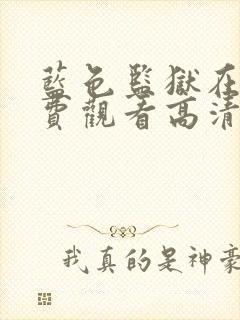 藍色監獄在
費觀看高清
我真的是神豪